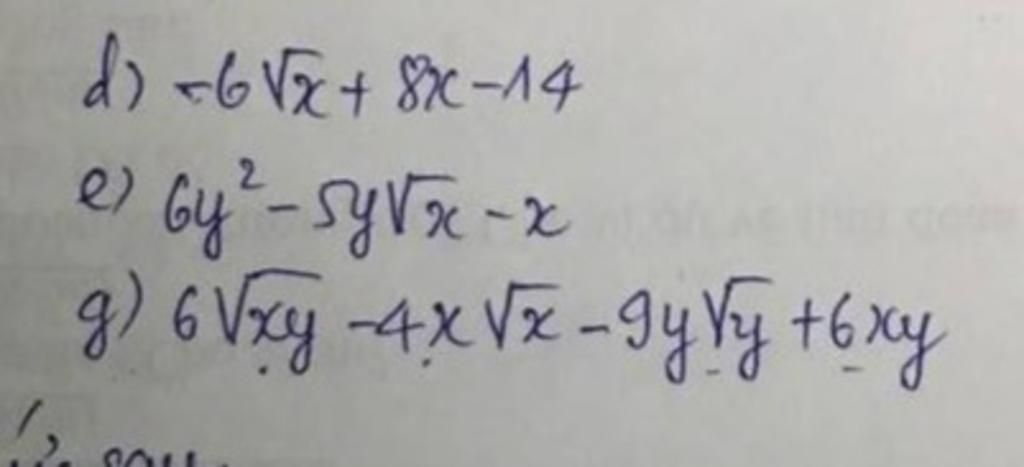 d) -6√x + 8x - 14
e) 6y² - 5y√x - x
g) 6√xy - 4x√x - 9y√y + 6xy